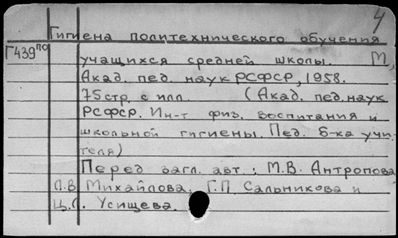 4
Гигиена политехнического обучения
Г439по
учащихся средней школы. М.,
Акад. пед. наук РСФСР, 1958.
75 стр. с илл. (Акад. пед. наук
РСФСР. Ин-т физ. воспитания и
школьной гигиены. Пед. б-ка учи-
теля)
Перед загл. авт.: М.В. Антропова
Л.В. Михайлова, Г.П. Сальникова и
Ц.Л. Усищева.